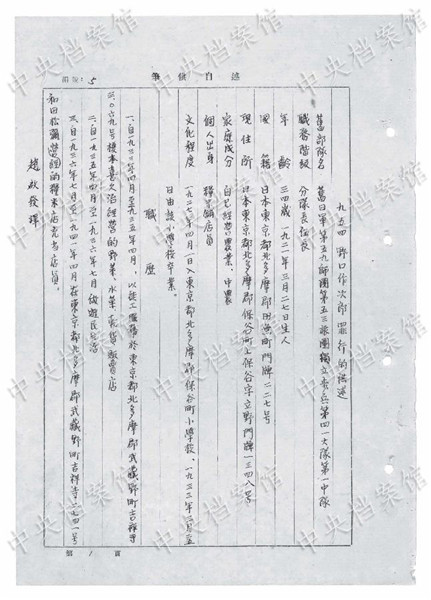 述自供筆
編號:5
九五四 野口作次郎罪行的認述
舊部隊名 舊日軍第五九師團第五三旅團獨立步兵第四一大隊第一中隊
職務階級 分隊長伍長
年齡 三四歲 一九二一年三月二七日生人
原籍 日本東京都北多摩郡田無町門牌二二七号
現住所 日本東京都北多摩郡保谷町上保谷字立野門牌一三四八号
家庭成分 自己經營農業、中農
個人出身 糧米舖店員
文化程度 一九二七年四月一日入東京都北多摩郡保谷町小學校、一九三三年三月至
日由該小學校卒業。
職歷
一、自一九三三年四月至一九三五年四月、以徒工服務於東京都北多摩郡武藏野町吉祥寺
三〇六九号榎本喜久治經營的野菜、水菓、販賣店
二、自一九三五年四月至一九三六年七月
三、自一九三六年七月至一九四一年四月在東京都北多摩郡武藏野町吉祥寺二七四一号
和田於彌營經的糧米店充當店員。
趙欣發譯
第 1 頁
中央档案馆